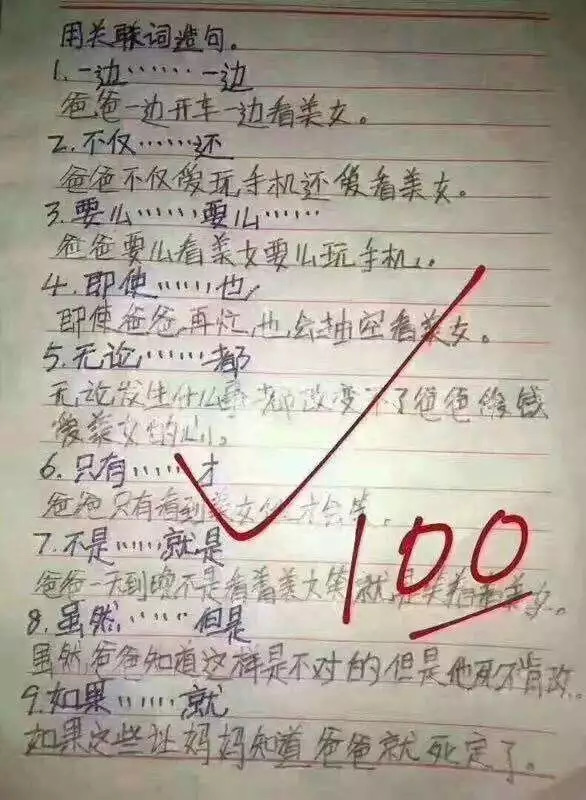 用关联词造句。
1.一边……一边
爸爸一边开车一边看美女。
2.不仅……还
爸爸不仅爱玩手机还爱看美女。
3.要么……要么……
爸爸要么看美女要么玩手机。
4.即使……也
即使爸爸再忙,也会抽空看美女。
5.无论……都
无论发生什么事都改变不了爸爸爱钱
爱美女的心。
6.只有……才
爸爸只有看到美女他才会笑。
7.不是……就是
爸爸一天到晚不是看着美女笑就是美女。
8.虽然……但是
虽然爸爸知道这样是不对的但是他死不肯改。
9.如果……就
如果这些让妈妈知道爸爸就死定了。
100